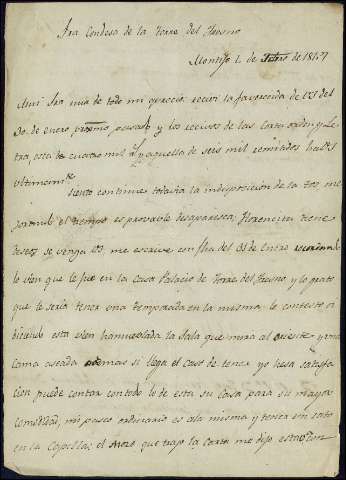 Sra Condesa de la Torre del Fresno
Montijo 1. de Febrero de 1847
Mui Sra mia de todo mi aprecio: recivi la favorecida de VS del
30. de enero proxmo pasado y los recivos de las Cartas orden y Le
tra, esta de cuatro mil y aquella de seis mil remitidos
ultimamte
Siento continue todavia la indisposicion de la tos, me
jorando el tiempo es provable desaparesca; Florencita tiene
deseos se venga VS, me escrive con fha del 31 de Enero
lo vien que le fue en la Casa Palacio de Torre del Fresno, y lo grato
que le seria tener una temporada en la misma: le contesto
diciendo esta vien la Sala que mira al oriente y una
cama aseada ademas si llega el caso de tener yo hesa satisfa
cion puede contar con todo lo de esta su casa para su mayor
comodidad, mi paseo ordinario es ala misma y tener un rato
en la Capilla; el mozo que trajo la Carta me dijo